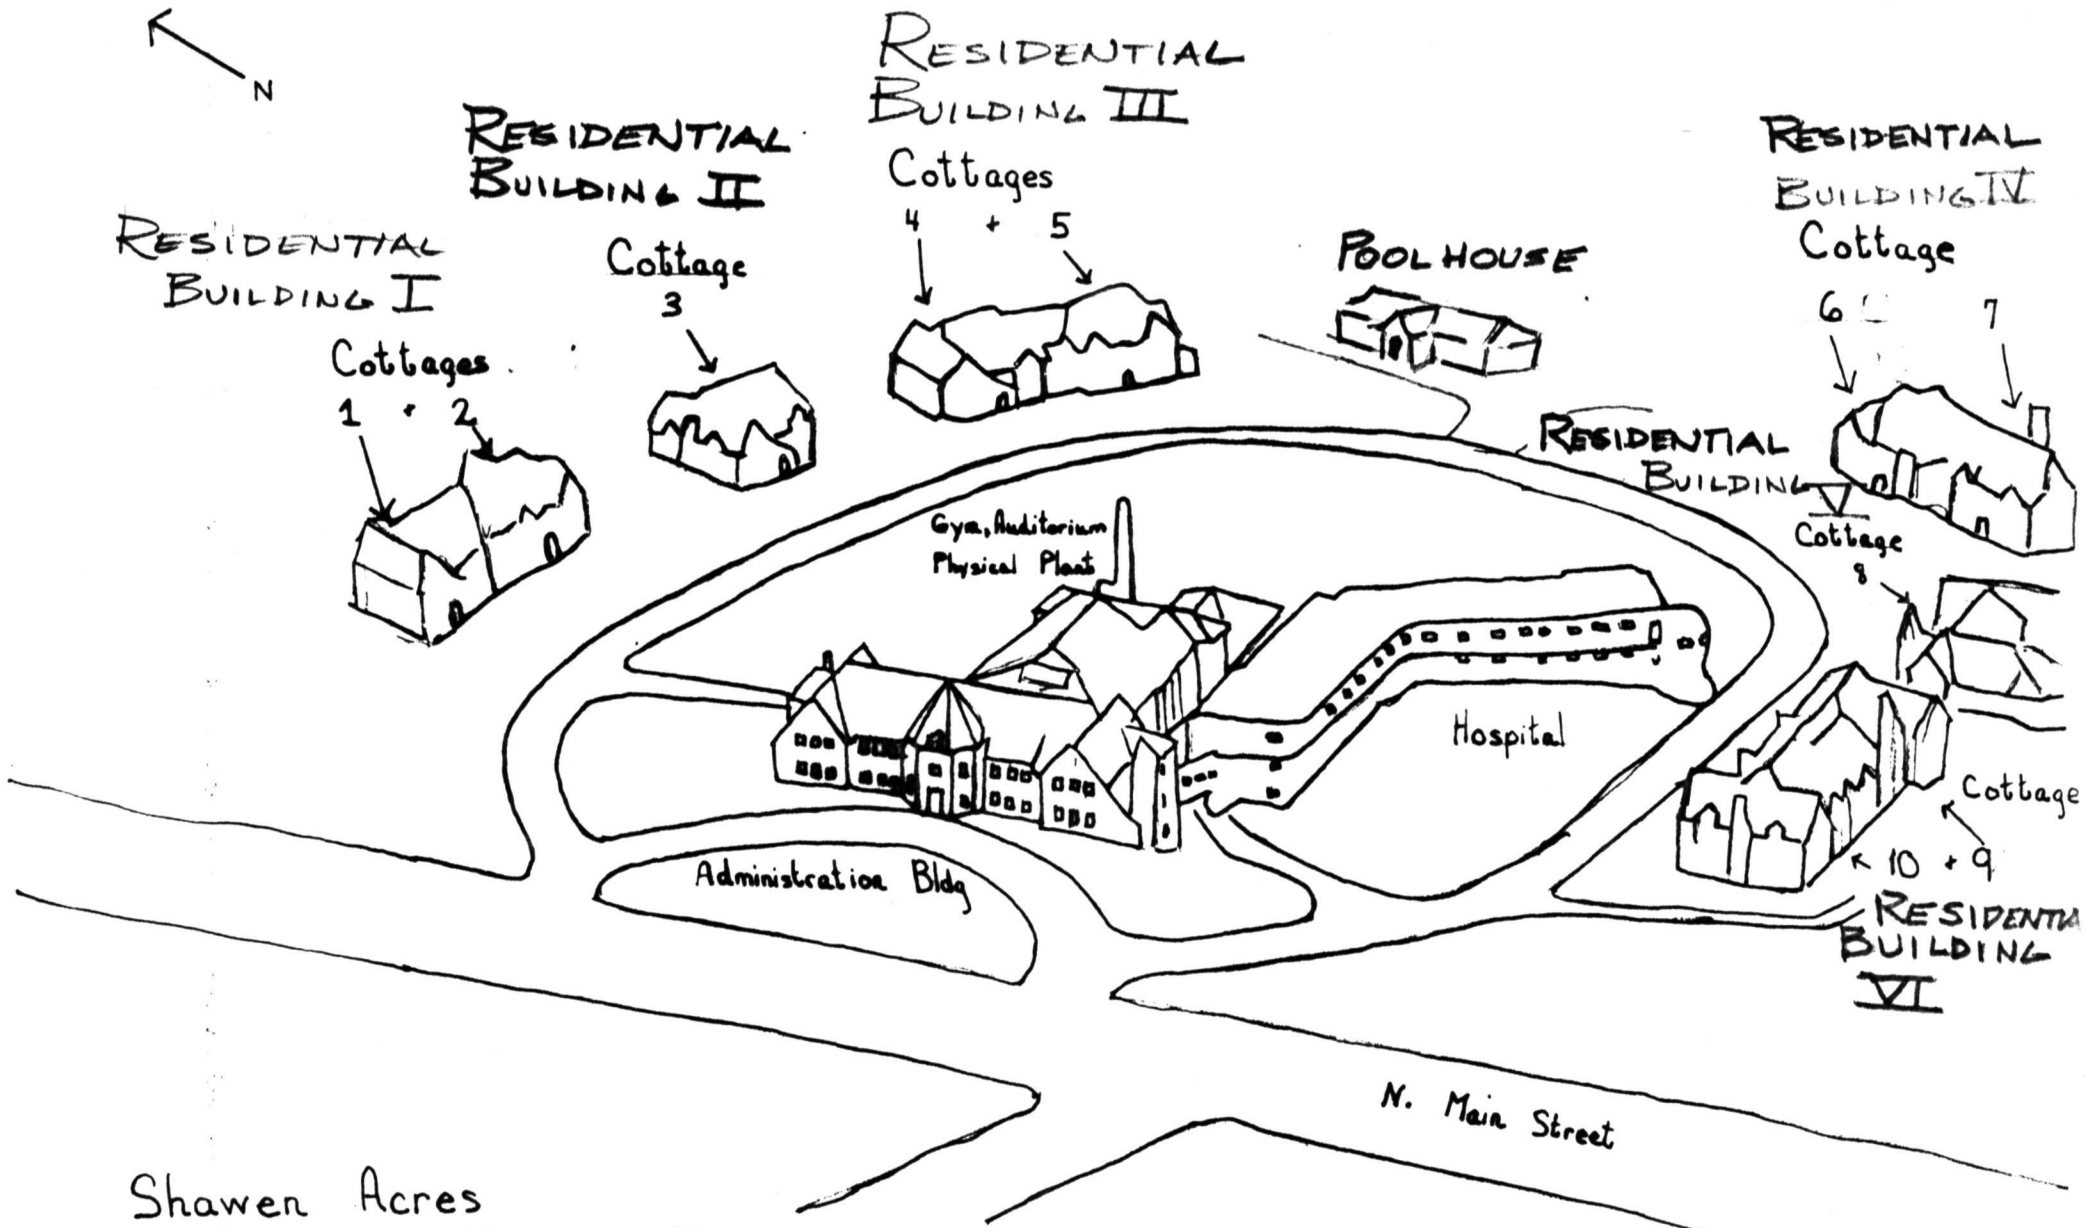 N
RESIDENTIAL
BUILDING III
Cottages
4 + 5
RESIDENTIAL
BUILDING II
Cottage
3
RESIDENTIAL
BUILDING I
Cottages
1 + 2
POOL HOUSE
RESIDENTIAL
BUILDING IV
Cottage
6 7
RESIDENTIAL
BUILDING
V
Cottage
8
Gym, Auditorium
Physical Plant
Hospital
Cottage
10 + 9
RESIDENTIA
BUILDING
VI
Administration Bldg
N. Main Street
Shawen Acres